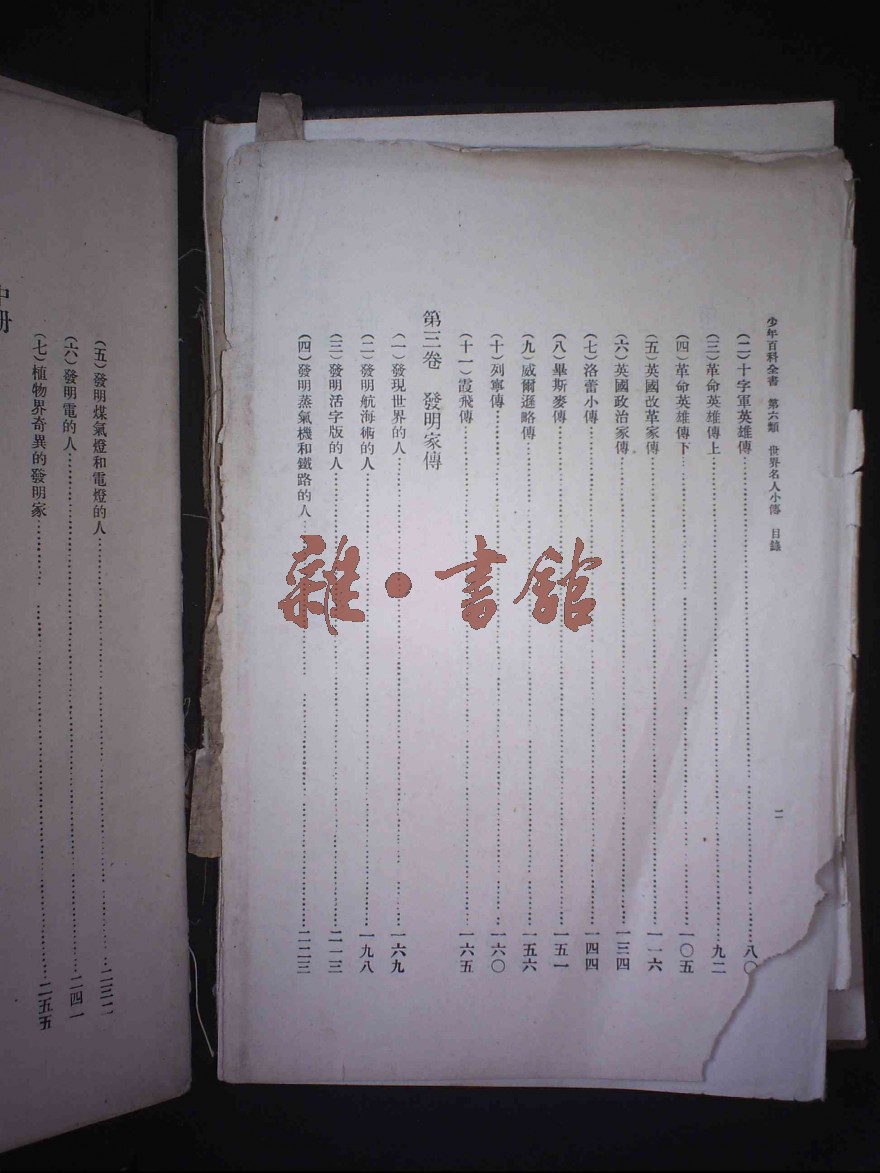 少年百科全書 第六類 世界名人小傳 目錄
二
(二)十字軍英雄傳……八〇
(三)革命英雄傳上……九二
(四)革命英雄傳下……一〇五
(五)英國改革家傳……一一六
(六)英國政治家傳……一三四
(七)洛蕾小傳……一四四
(八)畢斯麥傳……一五一
(九)威爾遜略傳……一五六
(十)列寧傳……一六〇
(十一)霞飛傳……一六五
第三卷 發明家傳
(一)發現世界的人……一六九
(二)發明航海術的人……一九八
(三)發明活字版的人……二一三
(四)發明蒸氣機和鐵路的人……二二三
(五)發明煤氣燈和電燈的人……二三二
(六)發明電的人……二四一
(七)植物界奇異的發明家……二五五
中册
雜·書館